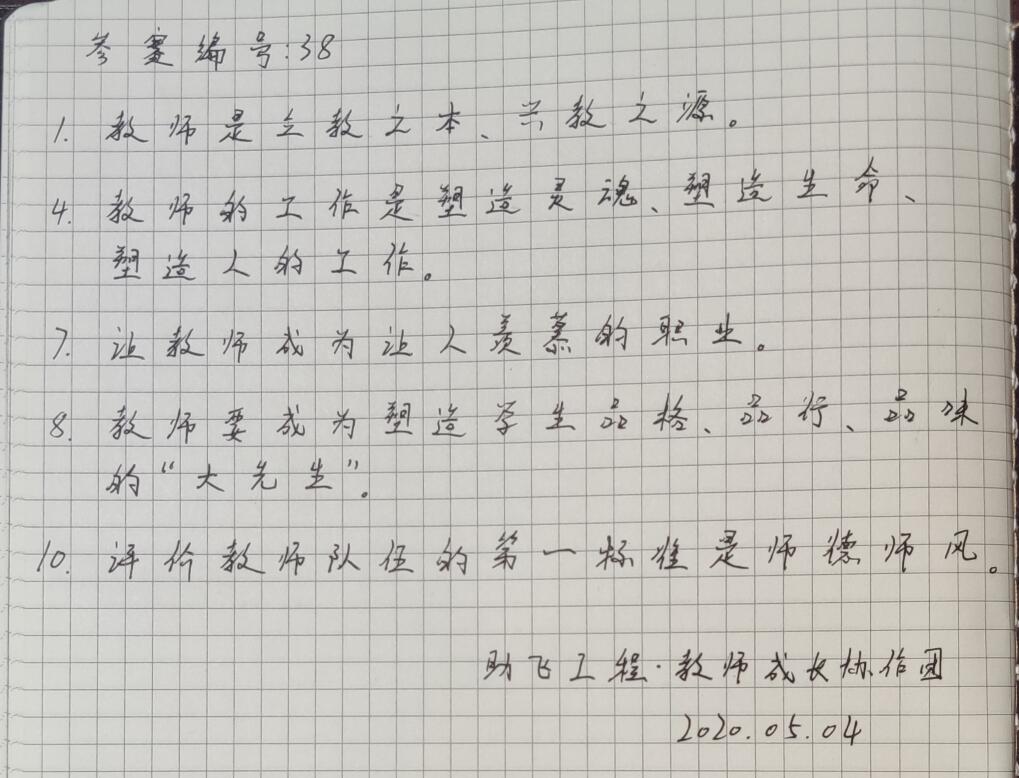 参赛编号:38
1. 教师是立教之本、兴教之源。
4. 教师的工作是塑造灵魂、塑造生命、
塑造人的工作。
7. 让教师成为让人羡慕的职业。
8. 教师要成为塑造学生品格、品行、品味
的“大先生”。
10. 评价教师队伍的第一标准是师德师风。
助飞工程·教师成长协作团
2020.05.04